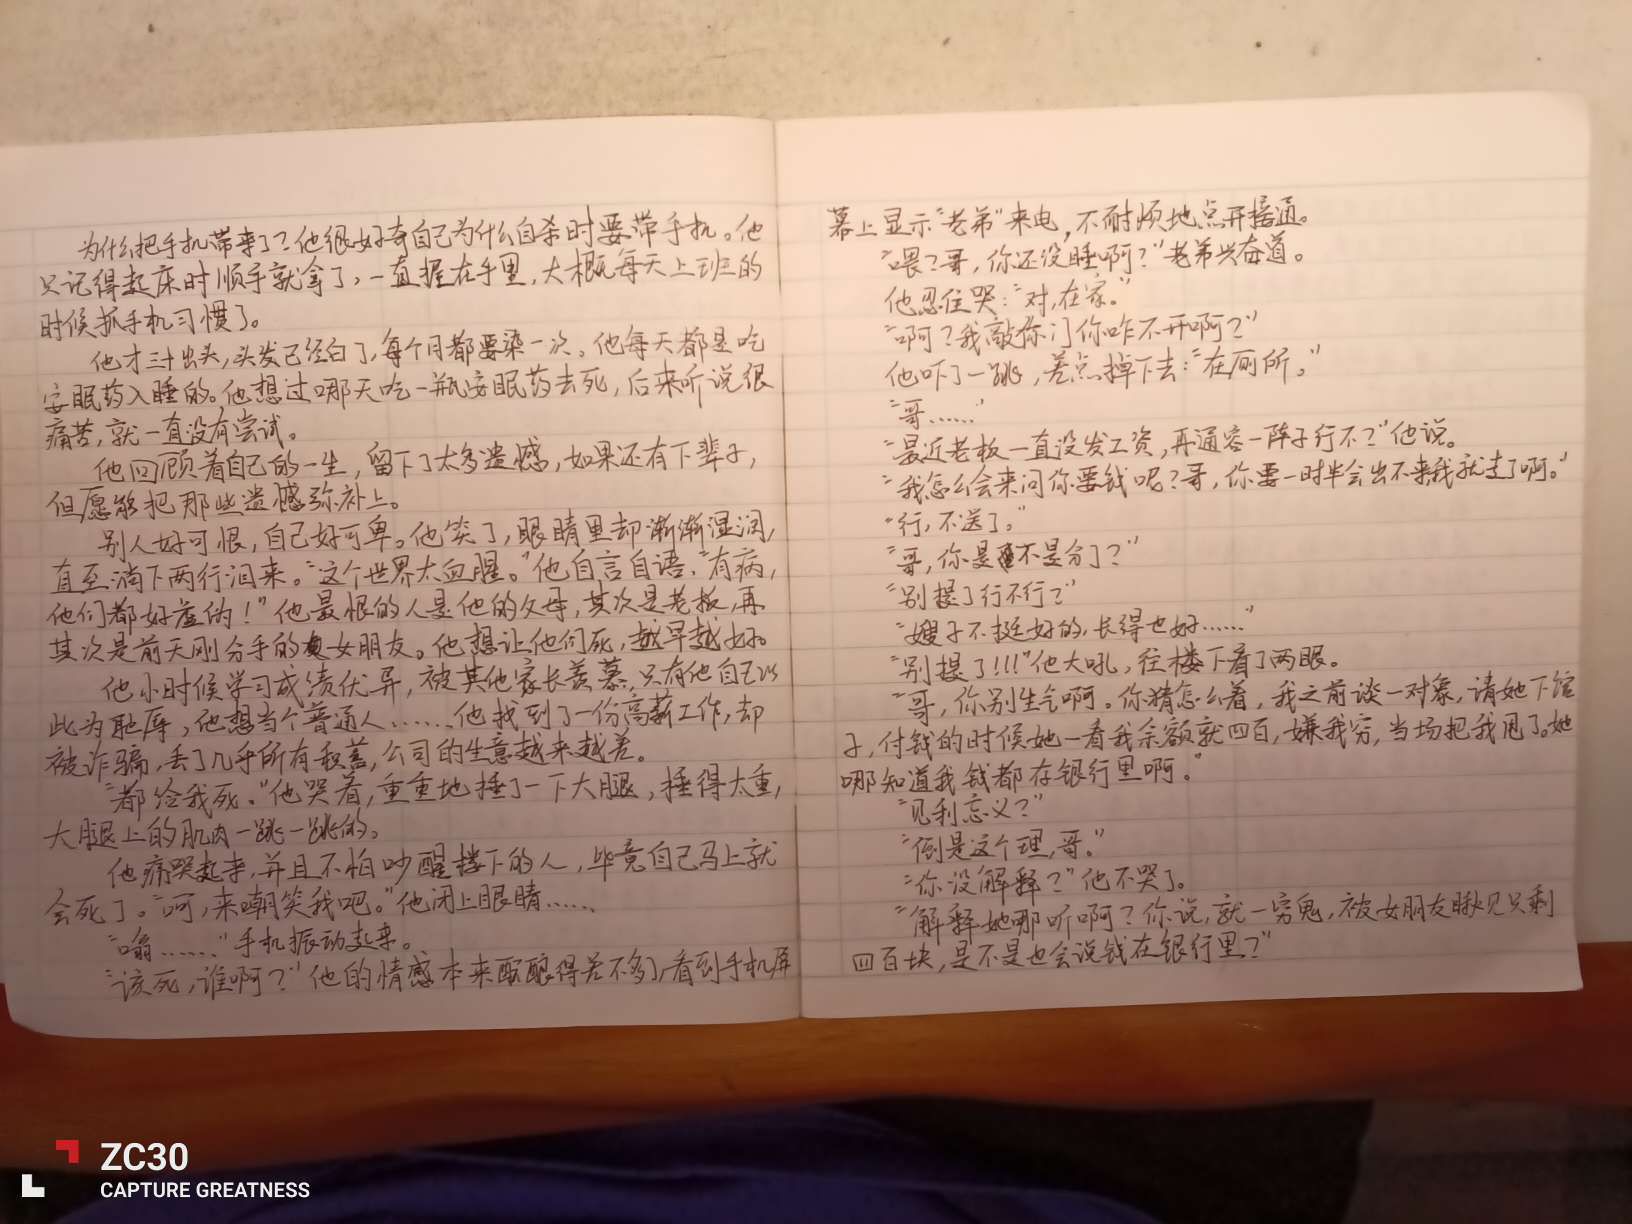 为什么把手机带来了？他很好奇自己为什么自杀时要带手机。他
只记得起床时顺手就拿了，一直握在手里，大概每天上班的
时候抓手机习惯了。
他才三十出头，头发已经白了，每个月都要染一次。他每天都是吃
安眠药入睡的。他想过哪天吃一瓶安眠药去死，后来听说很
痛苦，就一直没有尝试。
他回顾着自己的一生，留下了太多遗憾，如果还有下辈子，
但愿能把那些遗憾弥补上。
别人好可恨，自己好可卑。他笑了，眼睛里却渐渐湿润，
直至淌下两行泪来。“这个世界太血腥。”他自言自语，“有病，
他们都好虚伪！”他最恨的人是他的父母，其次是老板，再
其次是前天刚分手的女朋友。他想让他们死，越早越好。
他小时候学习成绩优异，被其他家长羡慕，只有他自己以
此为耻辱，他想当个普通人……他找到了一份高薪工作，却
被诈骗，丢了几乎所有积蓄，公司的生意越来越差。
“都给我死。”他哭着，重重地捶了一下大腿，捶得太重，
大腿上的肌肉一跳一跳的。
他痛哭起来，并且不怕吵醒楼下的人，毕竟自己马上就
会死了。“呵，来嘲笑我吧。”他闭上眼睛……
“嗡……”手机振动起来。
“该死，谁啊？”他的情感本来酝酿得差不多了，看到手机屏
幕上显示“老弟”来电，不耐烦地点开接通。
“喂？哥，你还没睡啊？”老弟兴奋道。
他忍住哭：“对，在家。”
“啊？我敲你门你咋不开啊？”
他吓了一跳，差点掉下去：“在厕所。”
“哥……”
“最近老板一直没发工资，再通容一阵子行不？”他说。
“我怎么会来问你要钱呢？哥，你要一时半会出不来我就走了啊。”
“行，不送了。”
“哥，你是不是分了？”
“别提了行不行？”
“嫂子不挺好的，长得也好……”
“别提了！！！”他大吼，往楼下看了两眼。
“哥，你别生气啊。你猜怎么着，我之前谈一对象，请她下馆
子，付钱的时候她一看我余额就四百，嫌我穷，当场把我甩了。她
哪知道我钱都存银行里啊。”
“见利忘义？”
“倒是这个理，哥。”
“你没解释？”他不哭了。
“解释她哪听啊？你说，就一穷鬼，被女朋友瞅见只剩
四百块，是不是也会说钱在银行里？”
ZC30
CAPTURE GREATNESS